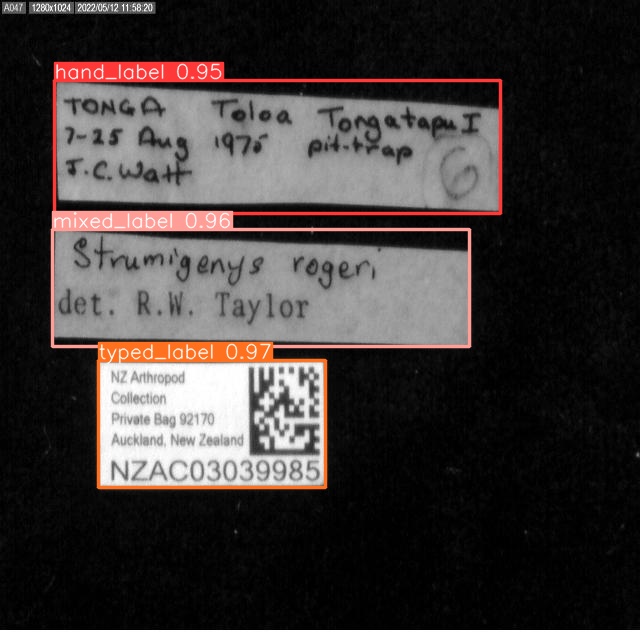 A047 1280x1024 2022/05/12 11:58:20
hand_label 0.95
TONGA Toloa Tongatapu I
7-25 Aug 1975 pit-trap
J.C. Watt
6
mixed_label 0.96
Strumigenys rogeri
det. R.W. Taylor
typed_label 0.97
NZ Arthropod
Collection
Private Bag 92170
Auckland, New Zealand
NZAC03039985